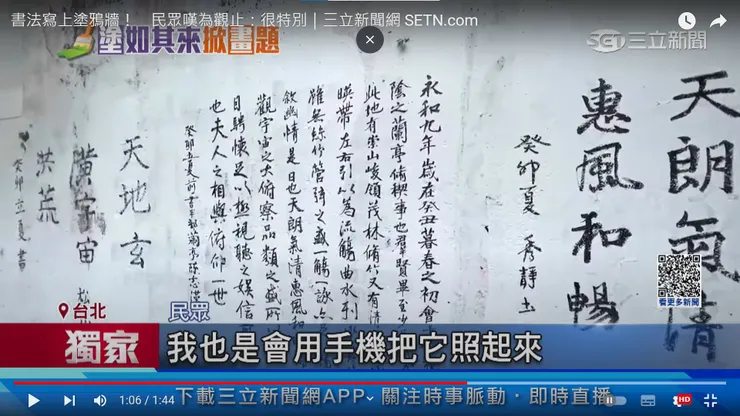 書法寫上塗鴉牆！ 民眾嘆為觀止：很特別｜三立新聞網 SETN.com
塗如其來掀畫題
SET三立新聞
天朗氣清
惠風和暢
癸卯夏 秀靜書
永和九年歲在癸丑暮春之初會
陰之蘭亭脩稧事也群賢畢至少
此地有崇山峻領茂林脩竹又有清
暎帶左右引以為流觴曲水列
雖無絲竹管弦之盛一觴一詠
敘幽情是日也天朗氣清惠風和
觀宇宙之大俯察品類之盛所
目騁懷足以極視聽之娛信
也夫人之相與俯仰一世
天地玄
黃宇宙
洪荒
癸卯立夏書
看更多新聞
台北
民眾
獨家
我也是會用手機把它照起來
下載三立新聞網APP 關注時事脈動．即時直播
1:06 / 1:44
HD